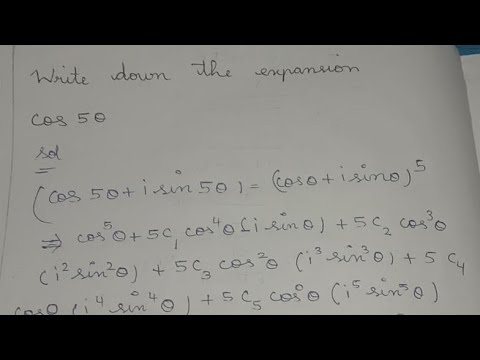 Write down the expansion
cos 5θ
sol
(cos 5θ + i sin 5θ) = (cosθ + i sinθ)^5
⇒ cos^5θ + 5C_1 cos^4θ (i sinθ) + 5C_2 cos^3θ
(i^2 sin^2θ) + 5C_3 cos^2θ (i^3 sin^3θ) + 5C_4
cosθ (i^4 sin^4θ) + 5C_5 cos^0θ (i^5 sin^5θ)